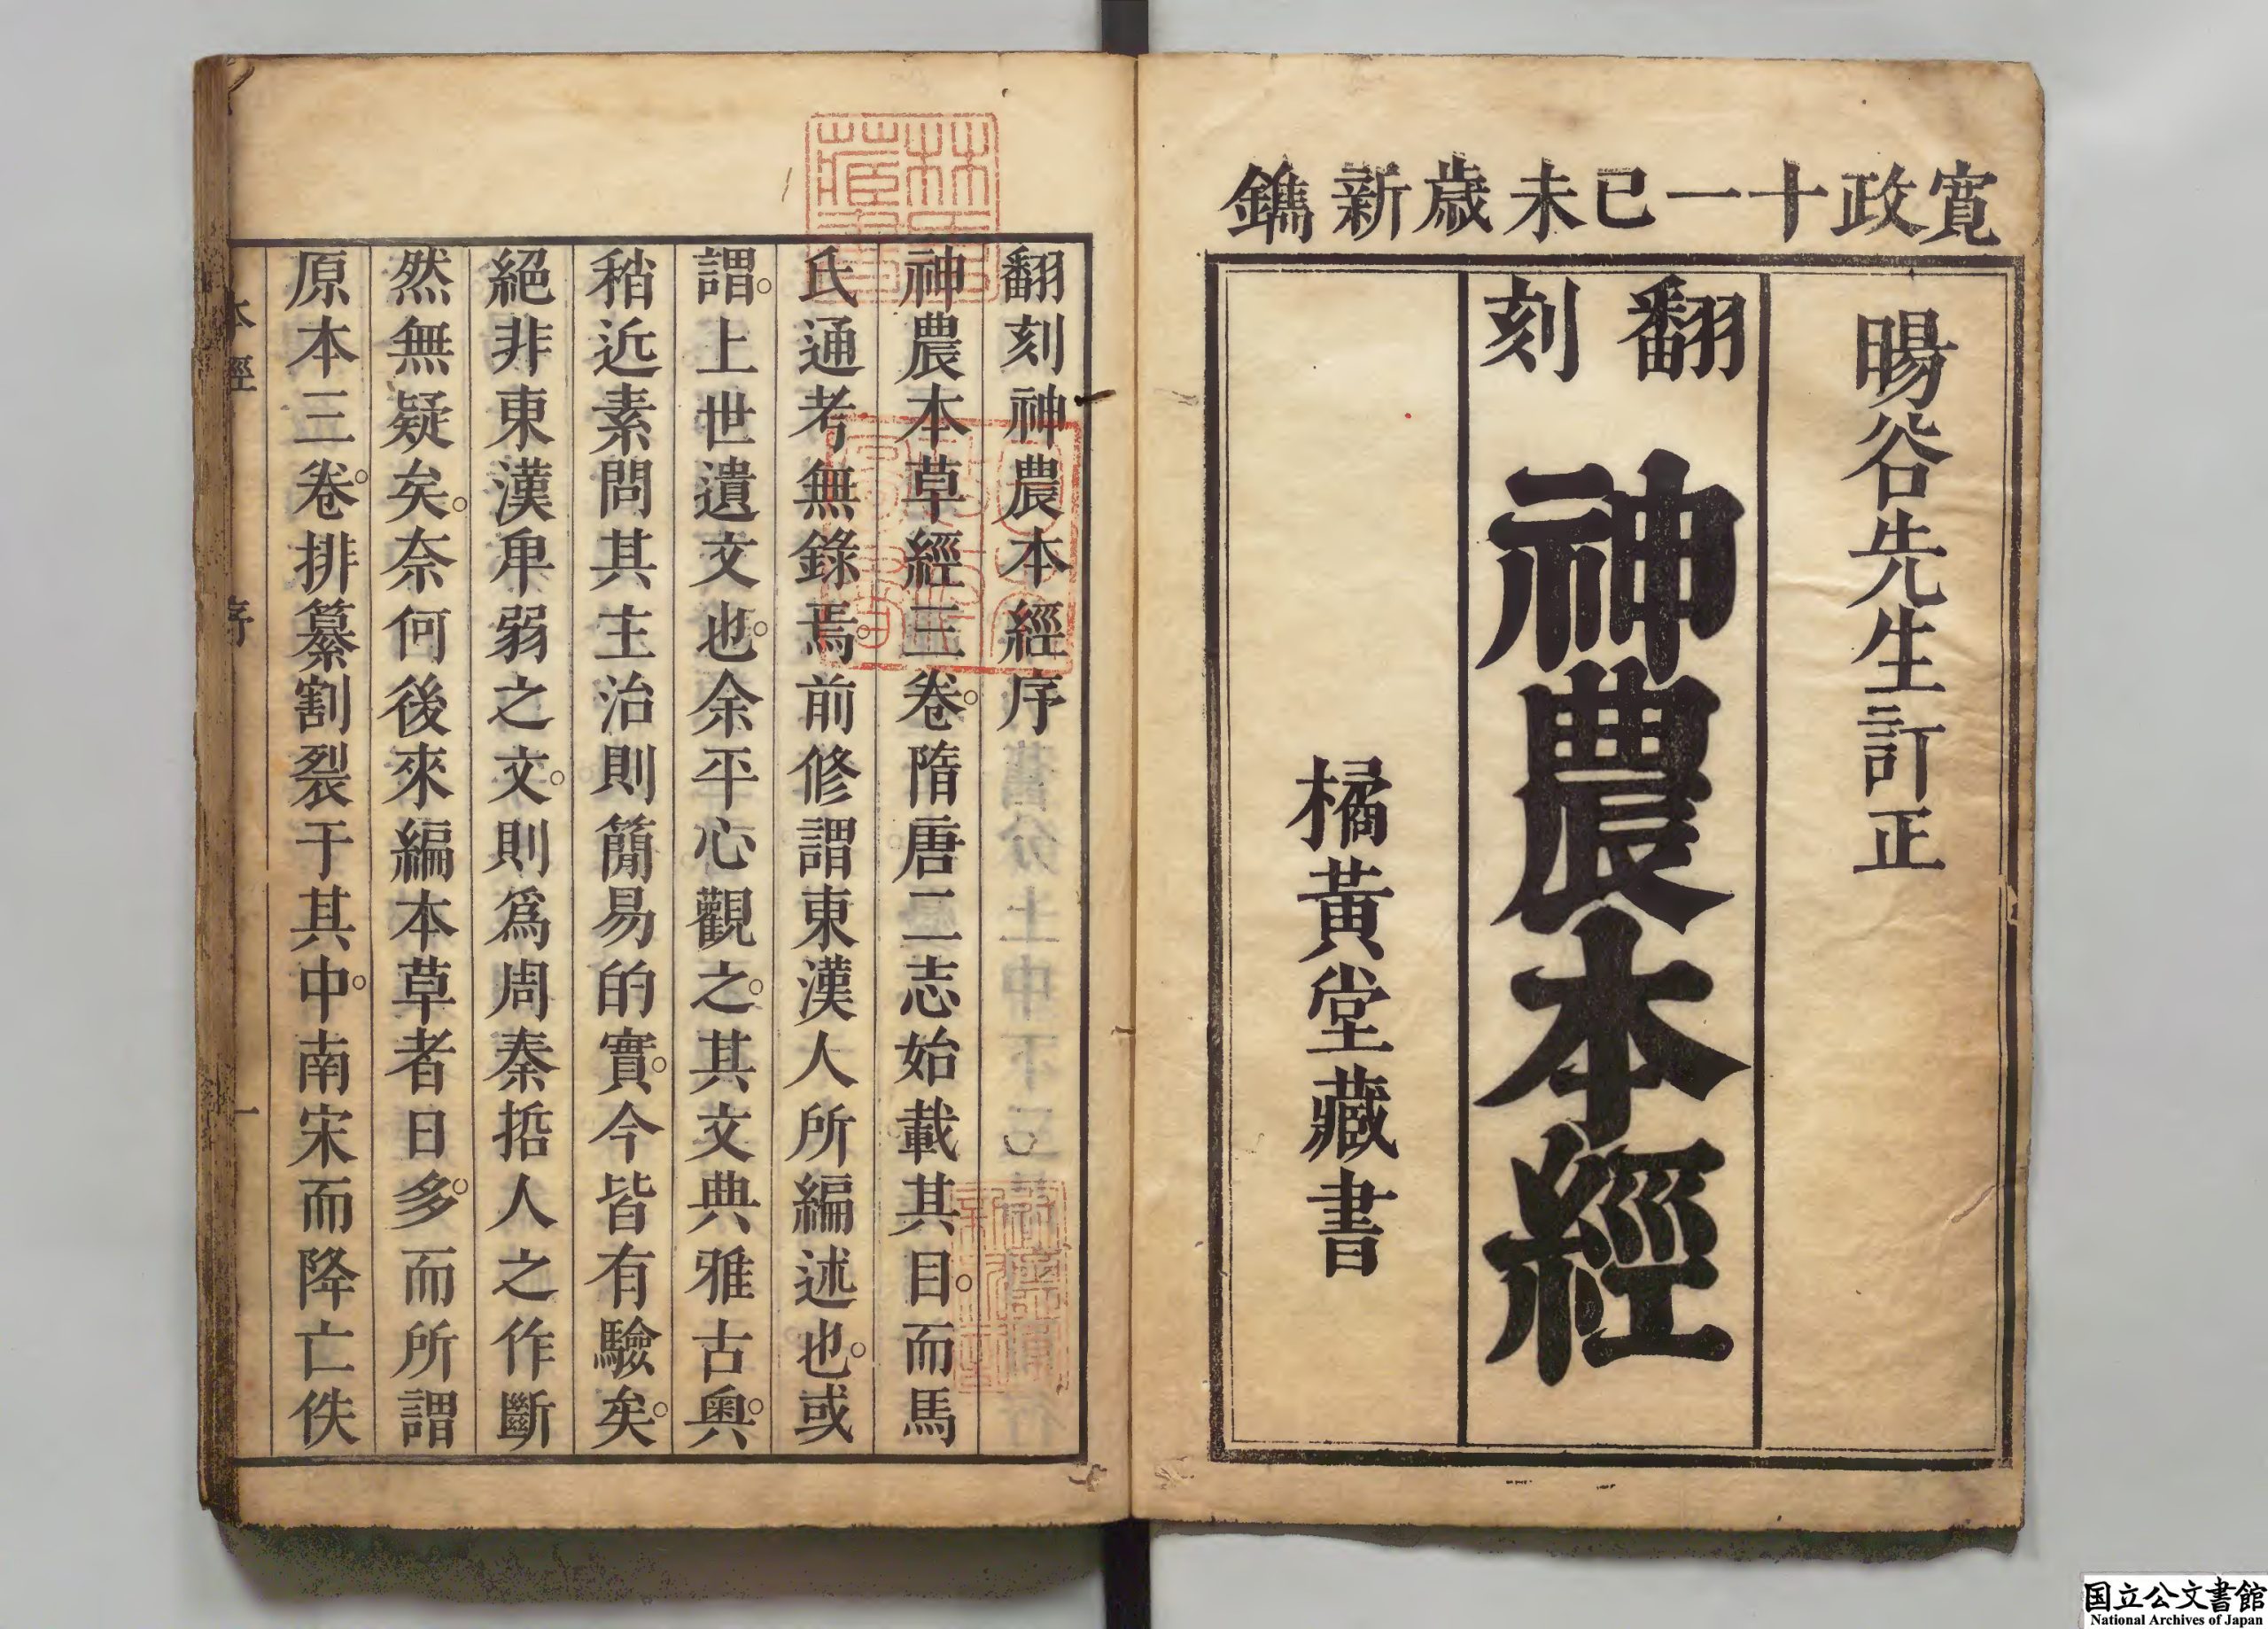 寛政十一己未歳新鐫
暘谷先生訂正
翻刻
神農本經
橘黃堂藏書
翻刻神農本經序
神農本草經三卷。隋唐二志始載其目。而馬
氏通考無錄焉。前修謂東漢人所編述也。或
謂。上世遺文也。余平心觀之。其文典雅古奧。
稍近素問其主治則簡易的實。今皆有驗矣。
絕非東漢卑弱之文。則爲周秦哲人之作斷
然無疑矣。奈何後來編本草者日多。而所謂
原本三卷。排纂割裂于其中。南宋而降亡佚
本經
序
一
国立公文書館
National Archives of Japan